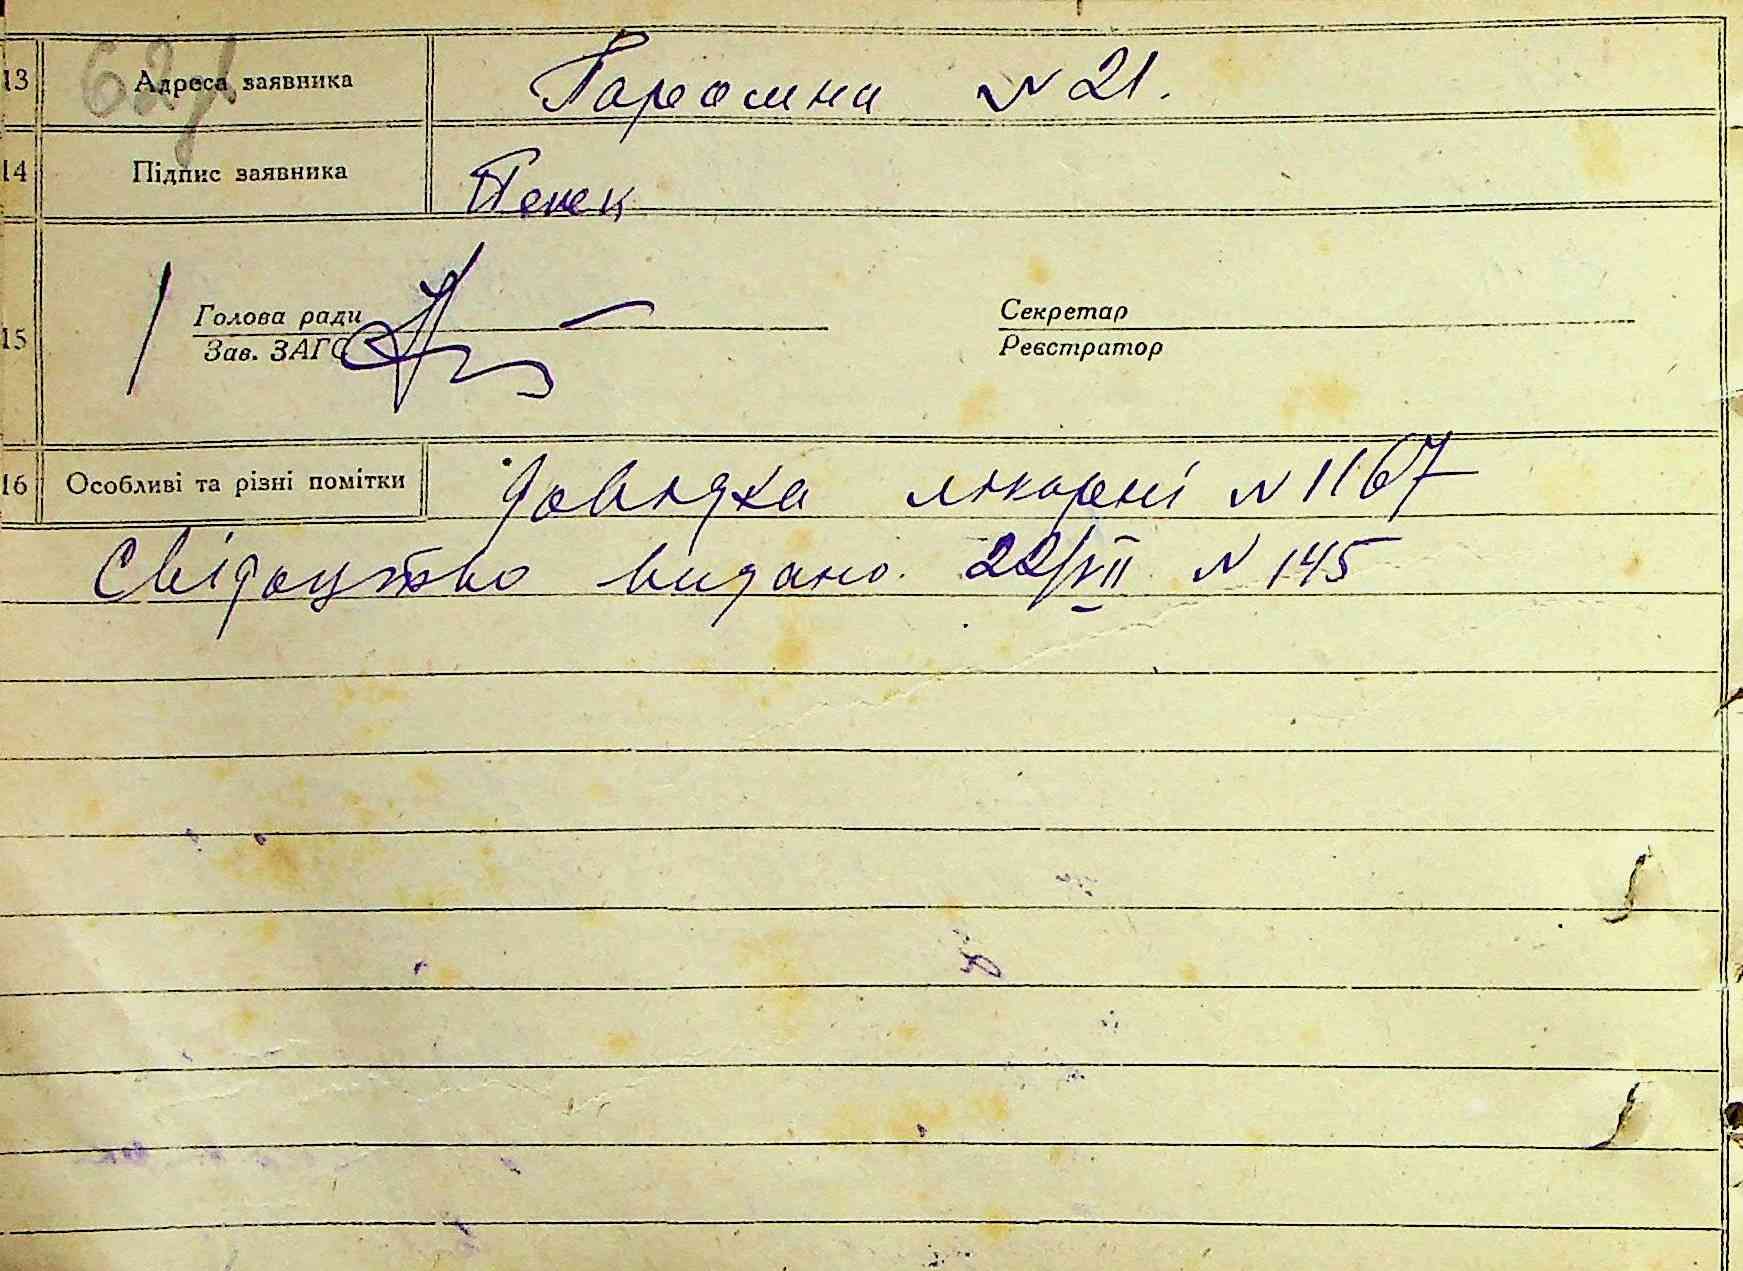 13 Адреса заявника № 21.
14 Підпис заявника
15 Голова ради Секретар
Зав. ЗАГС Реєстратор
16 Особливі та різні помітки Довидка лікарні № 1167
Свідоцтво видано. 22/VII № 145